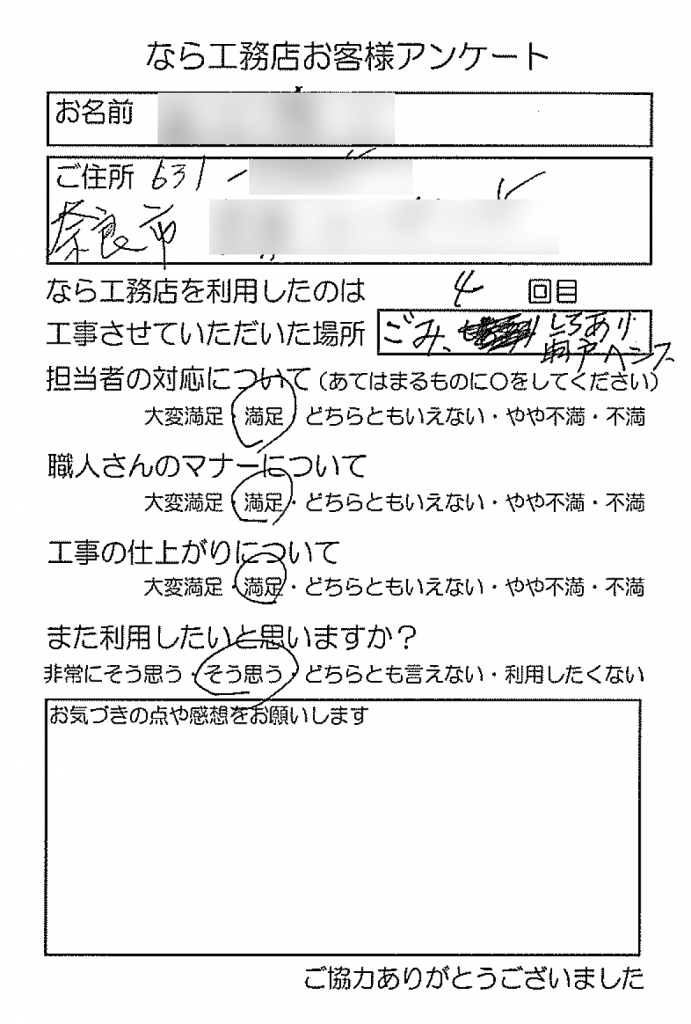 なら工務店お客様アンケート
お名前
ご住所 631-
奈良市
なら工務店を利用したのは 4 回目
工事させていただいた場所 ごみ、しろあり
雨戸 ヘンス
担当者の対応について(あてはまるものに〇をしてください)
大変満足・満足・どちらともいえない・やや不満・不満
職人さんのマナーについて
大変満足・満足・どちらともいえない・やや不満・不満
工事の仕上がりについて
大変満足・満足・どちらともいえない・やや不満・不満
また利用したいと思いますか?
非常にそう思う・そう思う・どちらとも言えない・利用したくない
お気づきの点や感想をお願いします
ご協力ありがとうございました